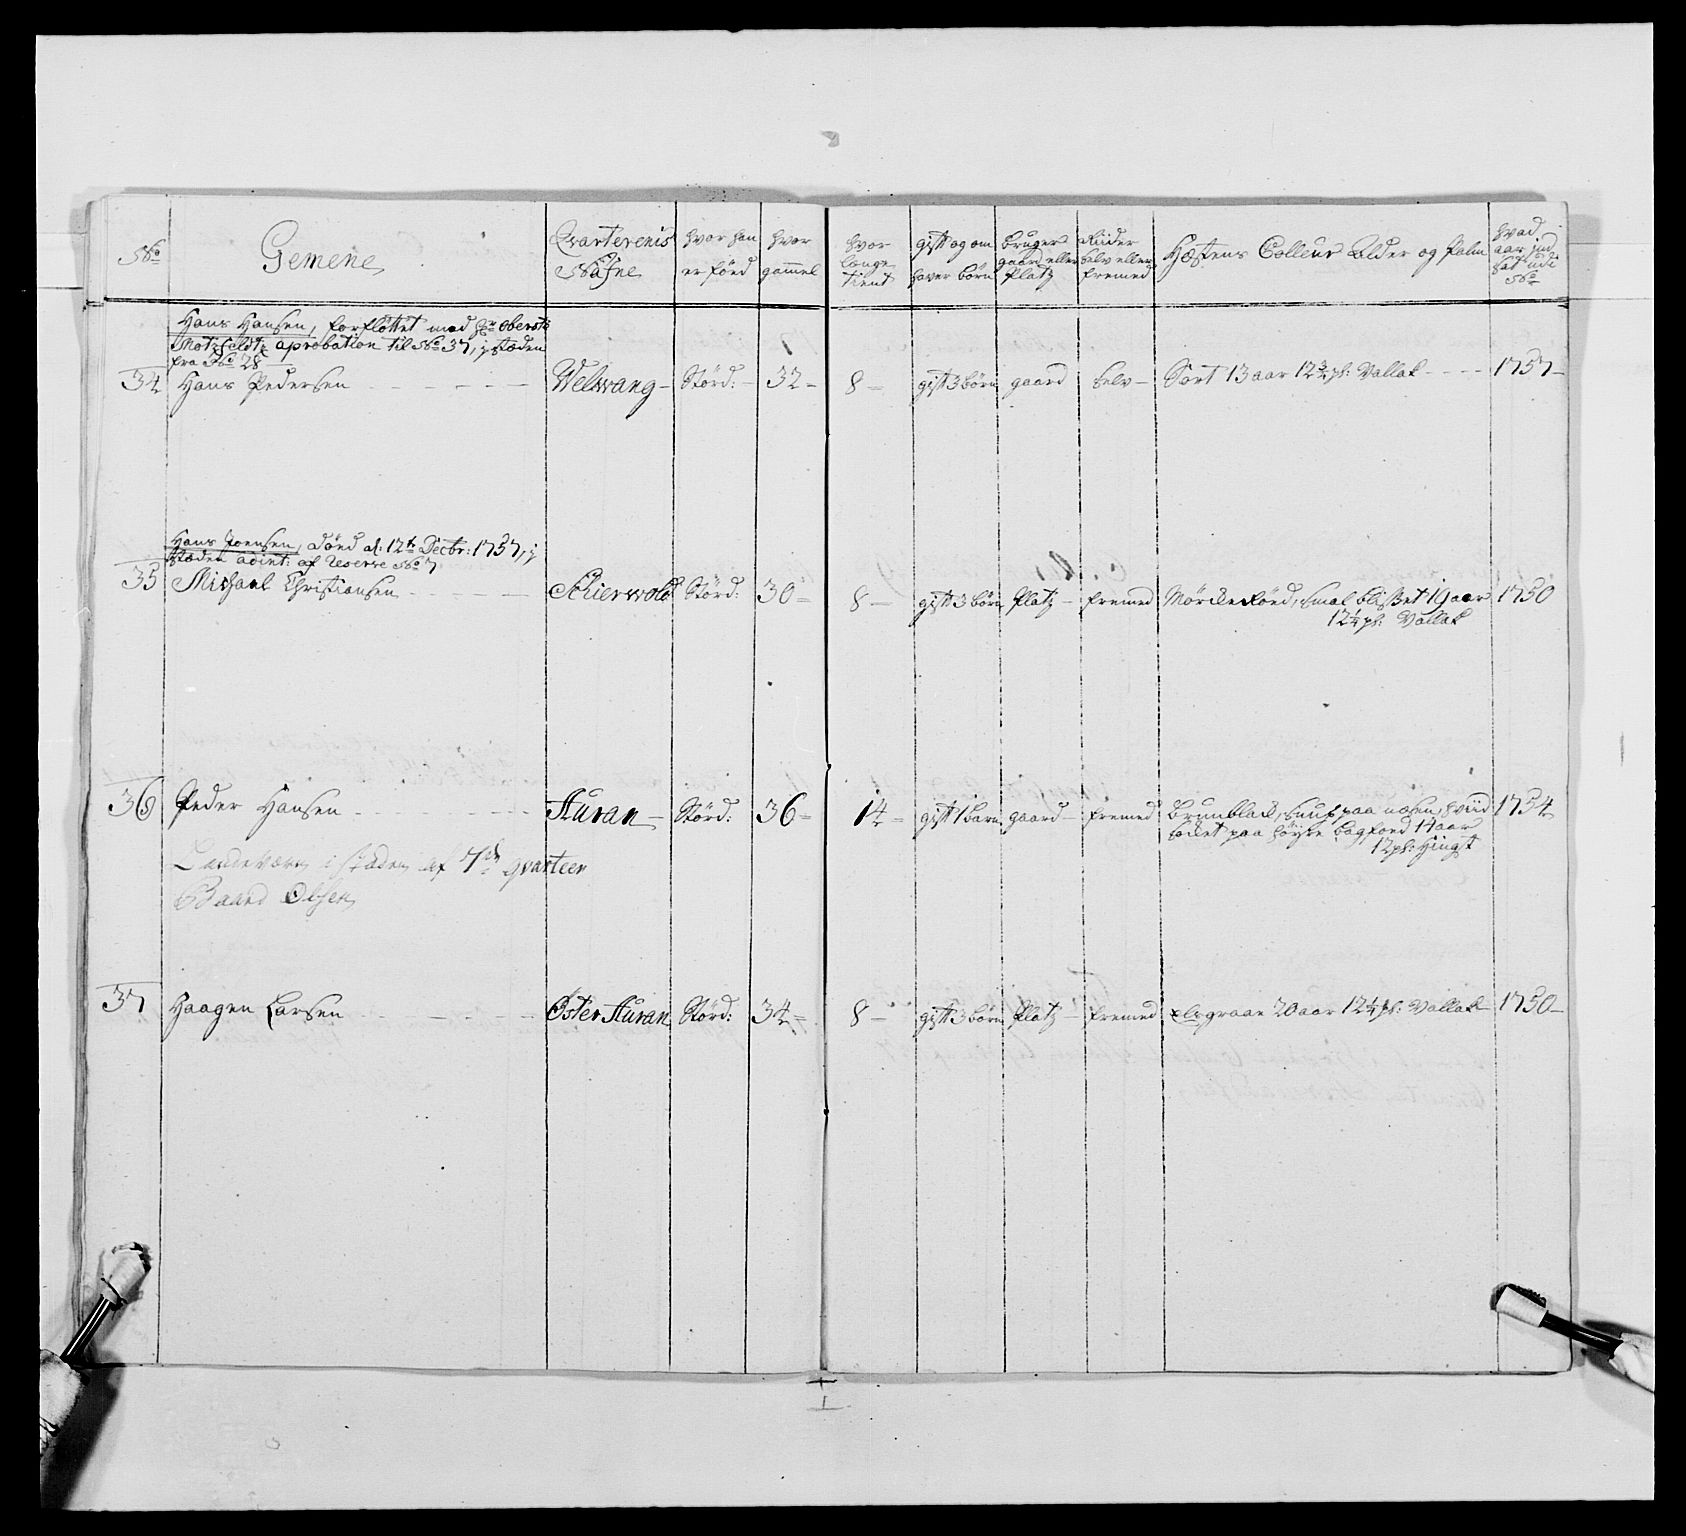 No
Gemene
Qvarterenis Nafne
hvor han er föed
hvor gammel
hvor længe tient
gift og om haver börn
bruger gaard eller Platz
Riider selv eller fremed
Hæstens Colleur Alder og Palm
hvad aar ind sat udi No
Hans Hansen, forflöttet med Hr Oberste
Motzfeldtz aprobation til No 37, j stæden
fra No 28
34 Hans Pedersen - - - - - Welwang - Störd: - 32 - 8 - gift 3 börn gaard selv - Sort 13 aar 12 3/4 pl: Vallak - - - - 1757 -
Hans Joensen, döed d: 12te Decbr: 1757, j
stæden adint: af Reserve No 7
35 Michael Christiansen - - - - Schierwold Störd: 30 - 8 - gift 3 börn Platz - fremed Mörckeröed, smal blisset 19 aar 1750
12 1/4 pl: Vallak
36 Peder Hansen - - - - - Auran - Störd: 36 - 14 - gift 1 barn gaard - fremed brunblack, snup paa næsen, hviid 1754
socket paa höyre bagfoed 14 aar
12 pl: Hingst
Landeværn i stæden af 7de qvarteer
Baard Olsen
37 Haagen Larsen - - - - Öster Auran Störd: 34 - 8 - gift 3 börn Platz - fremed graae 20 aar 12 1/4 pl: Vallak 1750 -